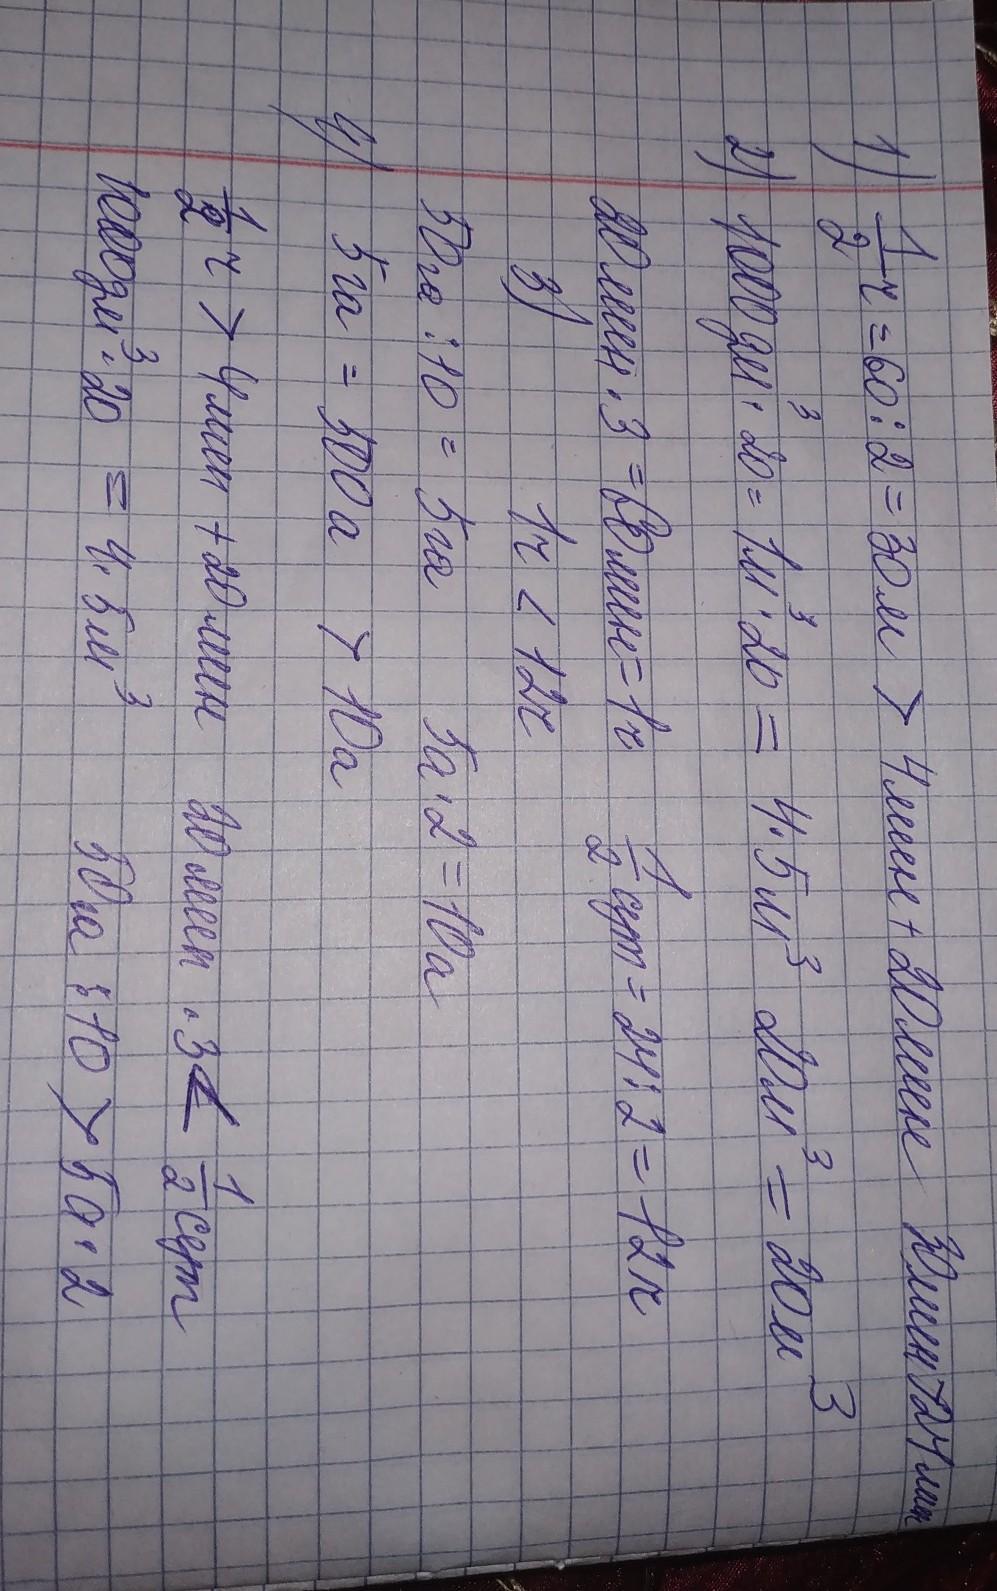 1) 1/2 ч = 60 : 2 = 30 м > 4 мин + 20 мин 30 мин > 24 мин
2) 1000 дм³ · 20 = 1 м³ · 20 = 4 · 5 м³ 20 м³ = 20 м³
20 мин · 3 = 60 мин = 1 ч 1/2 сут = 24 : 2 = 12 ч
3) 1 ч < 12 ч
50 га : 10 = 5 га 5а · 2 = 10а
4) 5 га = 500 а > 10а
1/2 ч > 4 мин + 20 мин 20 мин · 3 < 1/2 сут
1000 дм³ · 20 = 4 · 5 м³ 50 га : 10 > 5а · 2